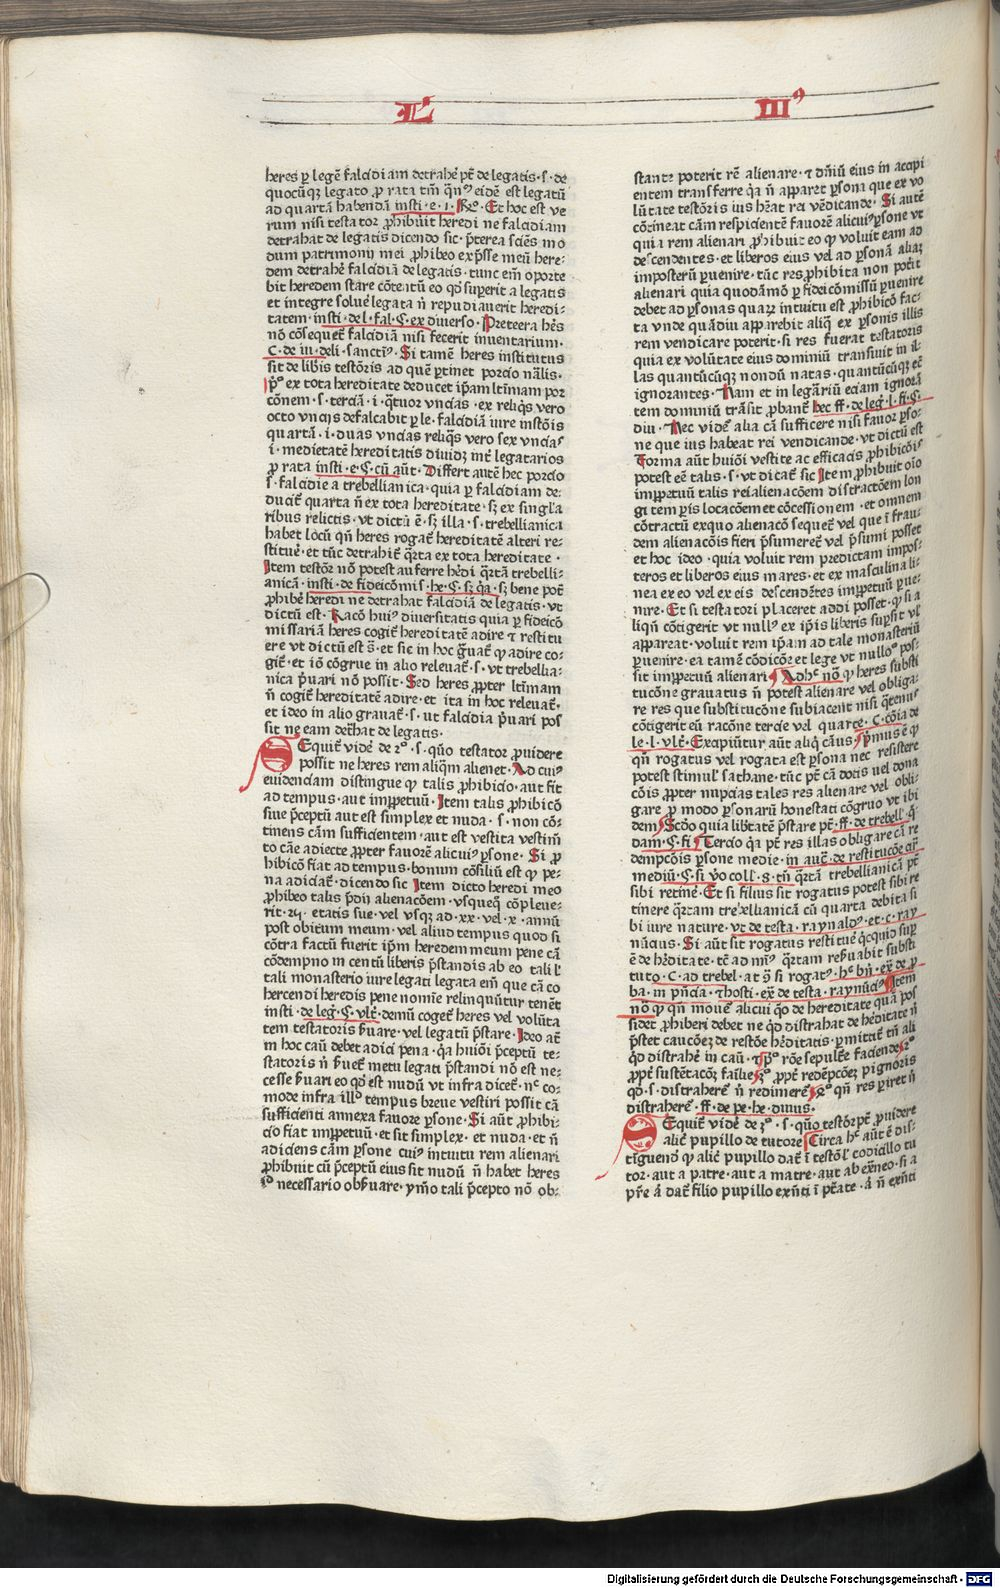 L
III⁹
heres ꝑ legē falcidiam detrahe᷑ pt᷑ de legatis · s · de
quocūqꝫ legato ꝓ rata tm̄ qn̄⁹ eidē est legatū
ad quartā habendā insti · e · i · Rͦ · Et hoc est ve
rum nisi testator ꝓhibuit heredi ne falcidiam
detrahat de legatis dicendo sic · p̄terea sciēs mo
dum patrimonij mei ꝓhibeo exp̄sse meū here⸗
dem detrahe᷑ falcidiā de legatis · tunc em̄ oporte
bit heredem stare cōtentū eo qd̓ suꝑerit a legatis
et integre solue᷑ legata n̄ repudiauerit heredi⸗
tatem · insti · de l · fal · C · ex diuerso · Preteera he᷑s
nō cōsequet᷑ falcidiā nisi fecerit inuentarium ·
C · de iu · deli · sancti⁹ · Si tamē heres institutus
sit de lib̓is testōris ad quē ꝑtinet porcio nālis ·
pͦ ex tota hereditate deducet ip̄am lt̄imam por
cōnem · s · terciā · i · qͣtuor vncias · ex reliq̄s vero
octo vncijs defalcabit ꝑ le · falcidiā iure instōis
quartā · i · duas vncias reliq̄s vero sex vncias
i · medietatē hereditatis diuidꝫ int᷑ legatarios
ꝓ rata insti · e · C · cū aūt · Differt autē hec porcio
s · falcidie a trebellianica · quia ꝑ falcidiam de⸗
ducit᷑ quarta n̄ ex tota hereditate · sꝫ ex singl̓a
ribus relictis · vt dictū ē · sꝫ illa · s · trebellianica
habet locū qn̄ heres rogat᷑ hereditatē alteri re⸗
stitue᷑ · et tūc detrahit᷑ qͣrta ex tota hereditate ·
Item testōr nō potest auferre he᷑di qͣrtā trebelli⸗
anicā · insti · de fideicōmis · he · C · sꝫ qa · sꝫ bene pot᷑
ꝓhibe᷑ heredi ne detrahat falcidiā de legatis · vt
dictū est · Racō hui⁹ diuersitatis quia ꝑ fideicō
missariā heres cogit᷑ hereditatē adire ⁊ restitu
ere vt dictū est s̄ · et sic in hoc gͣuat᷑ ꝙ adire co⸗
git᷑ · et iō cōgrue in alio releuat᷑ · s · vt trebellia⸗
nica p̄uari nō possit · Sed heres ꝓpter lt̄imam
n̄ cogit᷑ hereditatē adire · et ita in hoc releuat᷑ ·
et ideo in alio grauat᷑ · s · ut falcidia p̄uari pos
sit ne eam det᷑hat de legatis ·
SEquit᷑ vide᷑ de 2ͦ · s · qūo testator ꝓuidere
possit ne heres rem aliq̄m alienet · Ad cui⁹
euidenciam distingue ꝙ talis ꝓhibicio · aut fit
ad tempus · aut imꝑpetuū · Item talis ꝓhibicō
siue p̄ceptū aut est simplex et nuda · s · non cō⸗
tinens cām sufficientem · aut est vestita vestim̄
to cāe adiecte ꝓpter fauorē alicui⁹ ꝑsone · Si ꝓ
hibicō fiat ad tempus · bonum cōsiliū est ꝙ pe⸗
na adiciat᷑ · dicendo sic Item dicto heredi meo
ꝓhibeo talis p̄dij alienacōem · vsqueqꝫ cōpleue⸗
rit · 25 · etatis sue · vel vsqꝫ ad · xx · vel · x · annū
post obitum meum · vel aliud tempus quod si
cōtra factū fuerit ip̄m heredem meum pene cā
cōdempno in centū liberis p̄standis ab eo tali l̓
tali monasterio iure legati legata em̄ que cā co
hercendi heredis pene nomīe relinquūtur tenēt
insti · de leg · C · vlt᷑ · demū coget᷑ heres vel volūta
tem testatoris s̓uare · vel legatū p̄stare · Ideo at᷑
in hoc cāu debet adici pena · qa huiōi p̄ceptū te⸗
statoris n̄ s̓uet᷑ metu legati p̄standi nō est ne⸗
cesse s̓uari eo qd̓ est nudū vt infra dicet᷑ · nͨ co⸗
mode infra illͩ tempus breue vestiri possit cā
sufficienti annexa fauore ꝑsone · Si aūt ꝓhibi⸗
cio fiat imꝑpetuū · et sit simplex · et nuda · et n̄
adiciens cām ꝑsone cui⁹ intuitu rem alienari
ꝓhibuit cū p̄ceptū eius sit nudū n̄ habet heres
necessario obs̓uare · ymo tali p̄cepto nō ob⸗
stante poterit rē alienare · ⁊ dn̄iū eius in accipi
entem transferre qa n̄ apparet ꝑsona que ex vo
lūtate testōris ius he᷑at rei vēdicande · Si autē
cōtineat cām respicientē fauorē alicui⁹ ꝑsone vt
quia rem alienari ꝓhibuit eo ꝙ voluit eam ad
descendentes · et liberos eius vel ad ꝑsonā aliaꝫ
imposterū ꝑuenire · tūc res ꝓhibita non pot᷑it
alienari quia quodāmō ꝑ fideicōmissū ꝑuenire
debet ad ꝑsonas quarꝫ intuitu est ꝓhibicō fac⸗
ta vnde quādiu apparebit aliq̓ ex ꝑsonis illis
rem vendicare poterit · si res fuerat testatoris
quia ex volūtate eius dominiū transiuit in il⸗
las quantūcūqꝫ nondū natas · quantūcūqꝫ eē
ignorantes · Nam et in legaͬiū eciam ignorā
tem dominiū trāsit ꝓbant᷑ hec ff · de leg̓ · l · fi · C ·
diu · Nec vide᷑ alia cā sufficere nisi fauor ꝑso⸗
ne que ius habeat rei vendicande · vt dictū est
Forma aūt huiōi vestite ac efficacis ꝓhibicōis
potest eē talis · s · vt dicat᷑ sic Item ꝓhibuit oīo
imꝑpetuū talis rei alienacōem distractōem lon
gi tem ꝑis locacōem et cōcessionem · et omnem
cōtractū exquo alienacō sequet᷑ vel que ī frau⸗
dem alienacōis fieri p̄sumeret᷑ vel p̄sumi posset
et hoc ideo · quia voluit rem predictam impos⸗
teros et liberos eius mares · et ex masculina li⸗
nea ex eo vel ex eis descendētes imꝑpetuū ꝑue⸗
nire · Et si testatori placeret addi posset · ꝙ si a
liqn̄ cōtigerit vt null⁹ ex ip̄is liberis suꝑsit vl̓
appareat · voluit rem ip̄am ad tale monasteriū
ꝑuenire · ea tamē cōdicōe et lege vt nulloͦ pos⸗
sit imꝑpetuū alienari Adhͨ nō ꝙ heres substi
tucōne grauatus n̄ potest alienare vel obliga⸗
re res que substitucōne subiacent nisi qͣtenus
cōtigerit eū racōne tercie vel quarte · C · cōia de
le · l · vlt᷑ · Exapiūtur aūt aliq̓ cāus p̄mus ē ꝙ
qn̄ rogatus vel rogata est ꝑsona nec resistere
potest stimul̓ sathane · tūc pt᷑ cā dotis uel dona
cōis ꝓpter nupcias tales res alienare vel obli⸗
gare ꝓ modo ꝑsonarū honestati cōgruo vt ibi
dem Scd̓o quia lib̓tatē p̄stare pt᷑ · ff · de trebell̓ · q̓
dam · C · fi · Tercio qa pt᷑ res illas obligare cā re
dempcōis ꝑsone medie · in auc᷑ · de restitucōe
mediū · C · si v̓o coll · 8 · tn̄ qͣrtā trebellianicā pt᷑
sibi retine᷑ · Et si filius sit rogatus potest sibi re
tinere qͣrtam trebellianicā cū quarta debita si
bi iure nature · vt de testa · raynald⁹ · et · c · ray
nūcius · Si aūt sit rogatus restitue᷑ qͥcquid suꝑ
ē de he᷑ditate · tē ad mi⁹ qͣrtam res̓uabit substi
tuto · C · ad trebel · at ꝯ si rogat⁹ · hͨ hn̄ · ex̄ de ꝓ
ba · in p̄ncia · ⁊ hosti · ex̄ de testa · raynūci⁹ Item
nō ꝙ qn̄ moue᷑ alicui qō de hereditate quā pos
sidet ꝓhiberi debet ne qd̓ distrahat de he᷑ditate n̄
p̄stet caucōeꝫ de restōe he᷑ditatis · ꝑmittit᷑ tn̄ ali
qd̓ distrahe᷑ in cāu · ⁊ pͦ rōe sepult᷑e faciende 2ͦ
ꝓpt᷑ sustētacōꝫ failie 3ͦ ꝓpt᷑ redēpcōeꝫ pignoris
qd̓ · s · distrahere᷑ n̄ redimere᷑ 4ͦ qn̄ res ꝑiret n̄
distrahere᷑ · ff · de pe · he · diuus ·
SEquit᷑ vide᷑ de 3ͦ · s · qūo testōr pt᷑ ꝓuidere
alic̓ pupillo de tutore Circa hͨ aūt ē dis⸗
tīguend̓ ꝙ alic̓ pupillo dat᷑ ī testōl̓ codicillo tu
tor · aut a patre · aut a matre · aut ab ext̄neo · si a
pr̄e ā dat᷑ filio pupillo exn̄ti ī pt̄ate · ā n̄ exn̄ti
Digitalisierung gefördert durch die Deutsche Forschungsgemeinschaft · DFG